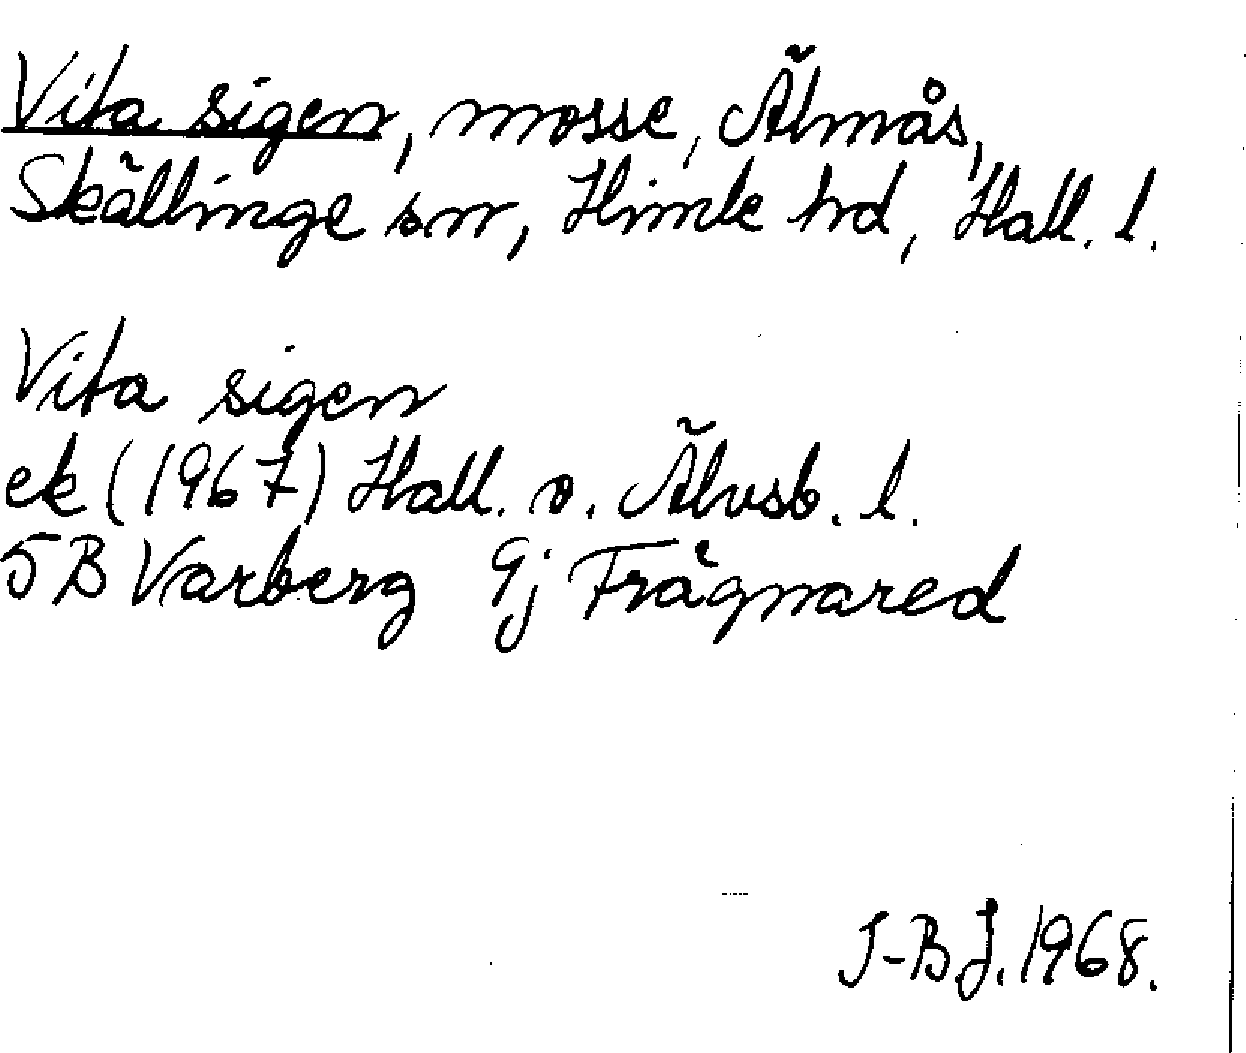 Vita sigen, mosse, Älmås,
Skällinge sn, Himle hd, Hall. l.
Vita sigen
ek (1967) Hall. o. Älvsb. l.
5B Varberg 9j Frägnared
I-B.J. 1968.